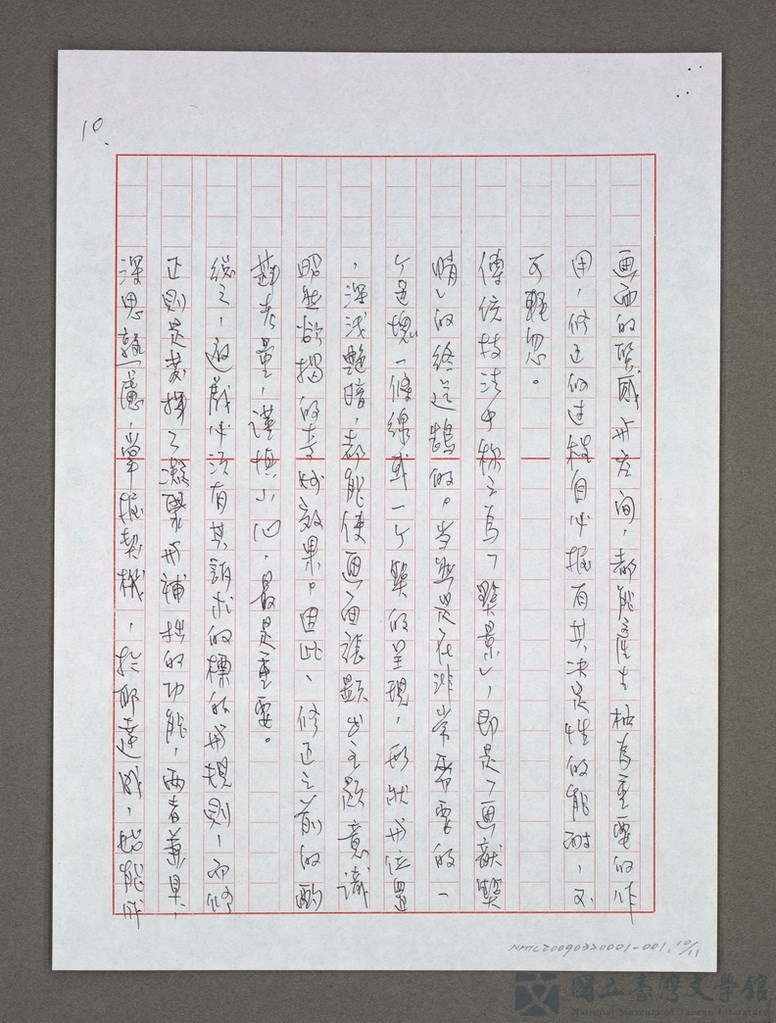 10.
畫面的質感與空間，都能產生極為重要的作
用，修正的過程自必握有其決定性的能耐，不
可輕忽。
傳統技法中称之為「點景」，即是「畫龍點
睛」的終送鵠的。当然是在非常需要的一
个色塊、一條線或一个點的呈現，形狀與位置
，深浅艷暗，都能使畫面張顯出主題意識
昭然欲揭的奇妙效果。因此、修正之前的酌
勘考量，謹慎小心，最是重要。
總之，遊戲必須有其訴求的標的與規則，而修
正則是發揮了凝聚與補拙的功能，兩者兼具，
深思熟慮，掌握契機，於那達成，始能成
NMTL20090320001-001, 10/11
國立臺灣文學館
National Museum of Taiwan Literature